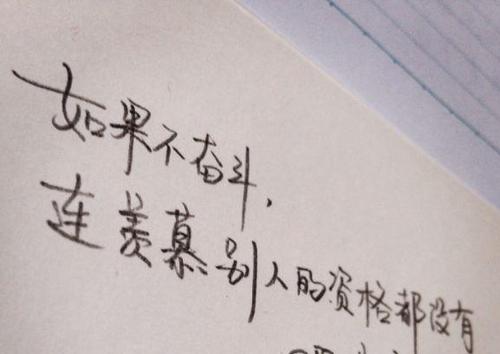 如果不奋斗，
连羡慕别人的资格都没有